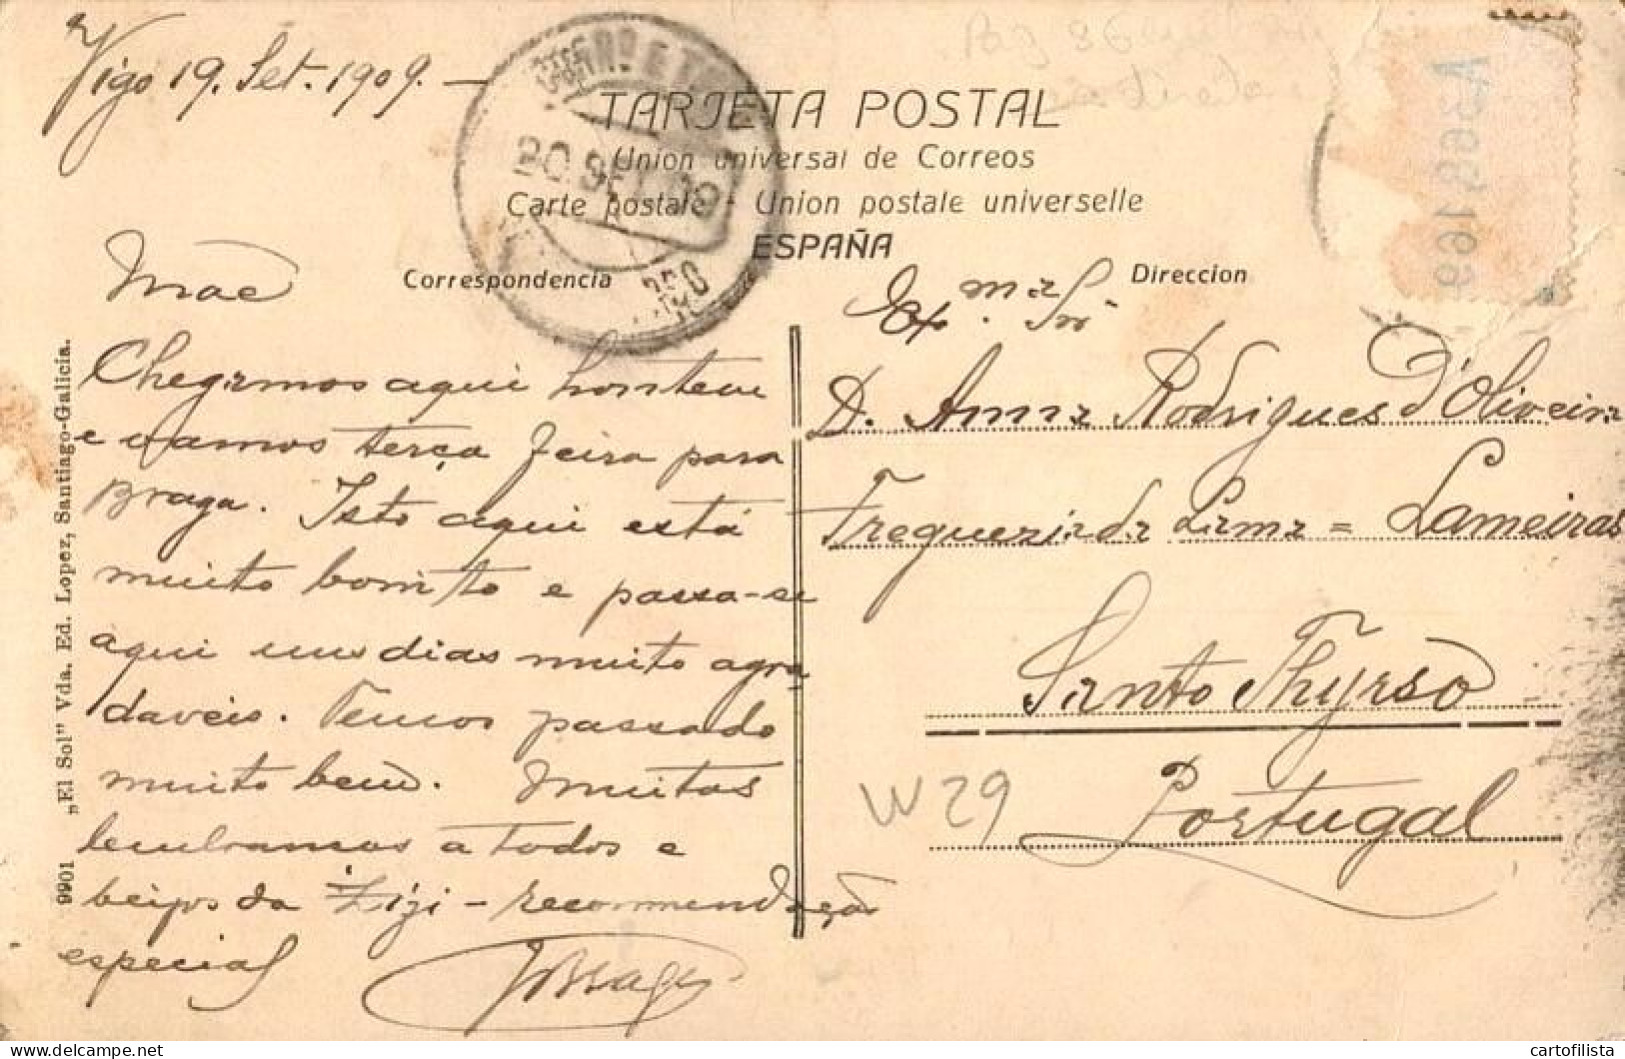 Vigo 19. Set. 1909. —
TARJETA POSTAL
Union universal de Correos
Carte postale - Union postale universelle
ESPAÑA
Correspondencia
Direccion
Mãe
Chegamos aqui hontem
e vamos terça feira para
Braga. Isto aqui está
muito bonito e passa-se
aqui uns dias muito agra
daveis. Temos passado
muito bem. Muitas
lembranças a todos e
beijos da Zizi - recommendação
especial
JBraga
Ex.ma Snr.ª
D. Anna Rodrigues d'Oliveira
Freguezia da Lama = Lameiras
Santo Thyrso
Portugal
W29
A3681,169
20 SET 09
9901 „El Sol" Vda. Ed. Lopez, Santiago-Galicia.
cartofilista
www.delcampe.net